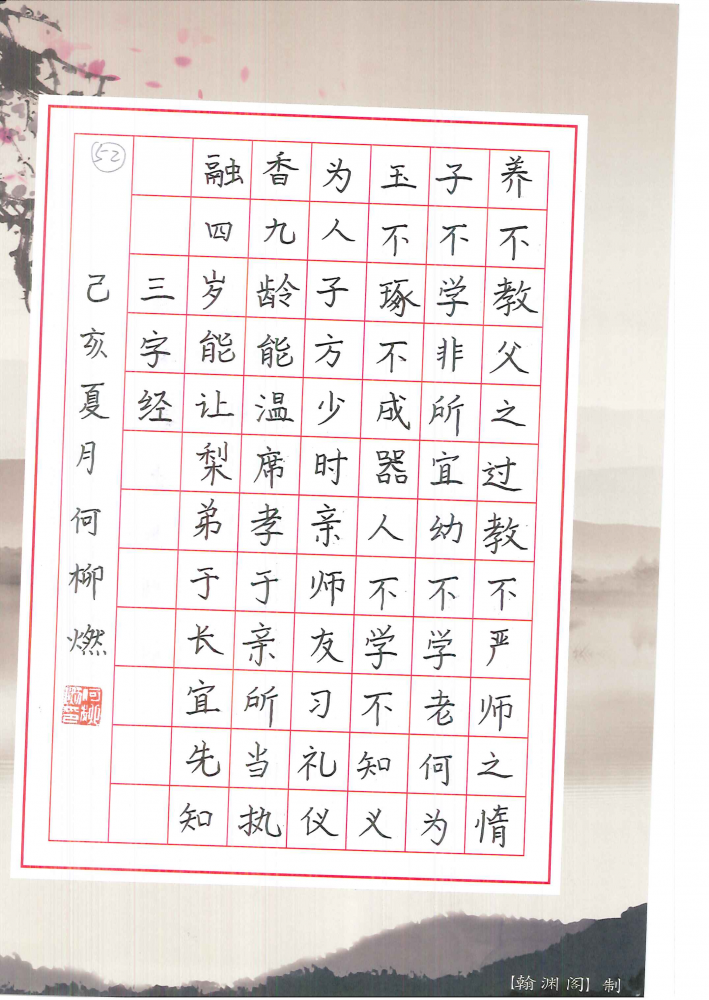 养不教父之过教不严师之惰
子不学非所宜幼不学老何为
玉不琢不成器人不学不知义
为人子方少时亲师友习礼仪
香九龄能温席孝于亲所当执
融四岁能让梨弟于长宜先知
三字经
52
己亥夏月何柳燃
【翰渊阁】制